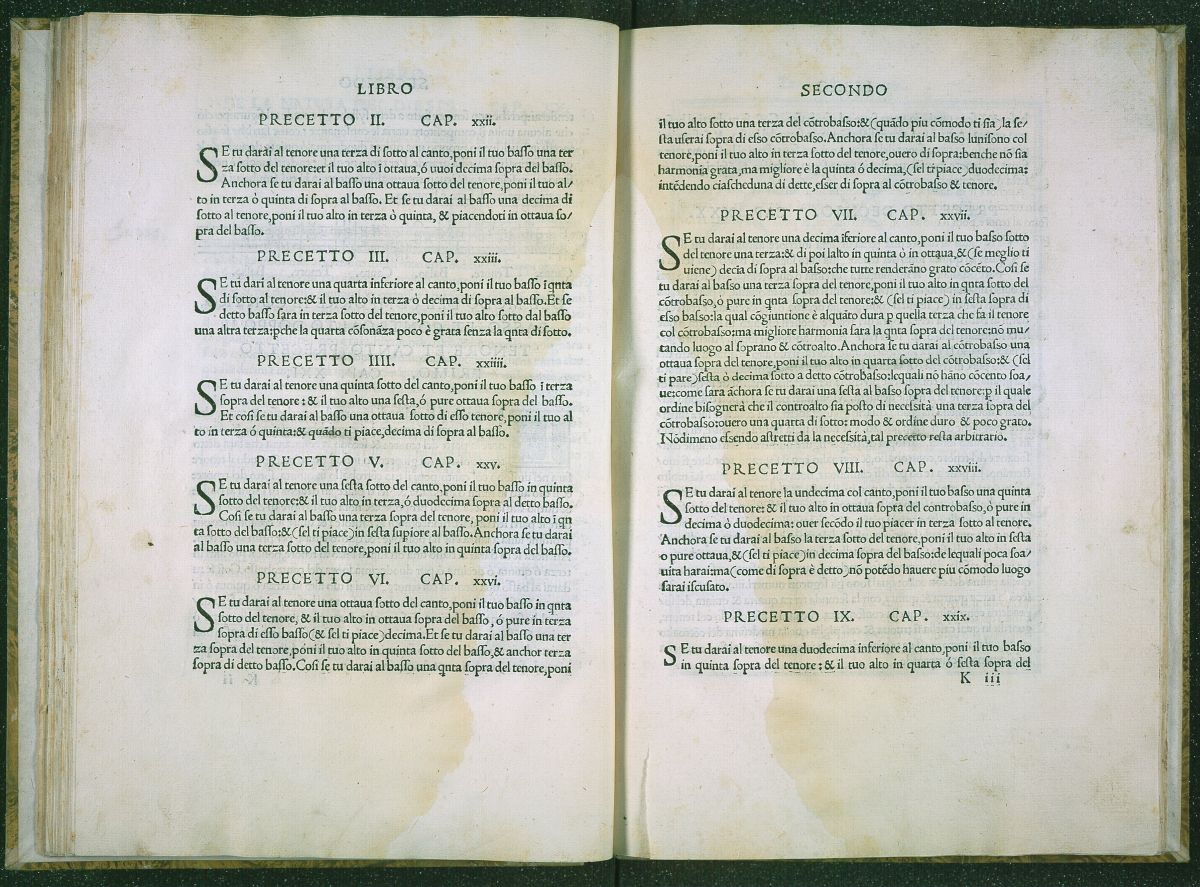 LIBRO
PRECETTO II. CAP. xxii.
SE tu darai al tenore una terza di sotto al canto, poni il tuo basso una ter
za sotto del tenore: et il tuo alto ĩ ottaua, ó uuoi decima sopra del basso.
Anchora se tu darai al basso una ottaua sotto del tenore, poni il tuo al/
to in terza ò quinta di sopra al basso. Et se tu darai al basso una decima di
sotto al tenore, poni il tuo alto in terza ò quinta, & piacendoti in ottaua so/
pra del basso.
PRECETTO III. CAP. xxiii.
SE tu dari al tenore una quarta inferiore al canto, poni il tuo basso ĩ qnta
di sotto al tenore: & il tuo alto in terza ò decima di sopra al basso. Et se
detto basso sara in terza sotto del tenore, poni il tuo alto sotto dal basso
una altra terza: pche la quarta cõsonãza poco è grata senza la qnta di sotto.
PRECETTO IIII. CAP. xxiiii.
SE tu darai al tenore una quinta sotto del canto, poni il tuo basso ĩ terza
sopra del tenore: & il tuo alto una sesta, ó pure ottaua sopra del basso.
Et cosi se tu darai al basso una ottaua sotto di esso tenore, poni il tuo al
to in terza ó quinta: & quãdo ti piace, decima di sopra al basso.
PRECETTO V. CAP. xxv.
SE tu darai al tenore una sesta sotto del canto, poni il tuo basso in quinta
sotto del tenore: & il tuo alto in terza, ó duodecima sopra al detto basso.
Cosi se tu darai al basso una terza sopra del tenore, poni il tuo alto ĩ qn
ta sotto del basso: & (sel ti piace) in sesta supiore al basso. Anchora se tu darai
al basso una terza sotto del tenore, poni il tuo alto in quinta sopra del basso.
PRECETTO VI. CAP. xxvi.
SE tu darai al tenore una ottaua sotto del canto, poni il tuo basso in qnta
sotto del tenore, & il tuo alto in ottaua sopra del basso, ó pure in terza
sopra di esso basso (& sel ti piace) decima. Et se tu darai al basso una ter
za sopra del tenore, poni il tuo alto in quinta sotto del basso, & anchor terza
sopra di detto basso. Cosi se tu darai al basso una qnta sopra del tenore, poni
SECONDO
il tuo alto sotto una terza del cõtrobasso: & (quãdo piu cõmodo ti sia) la se/
sta userai sopra di esso cõtrobasso. Anchora se tu darai al basso lunisono col
tenore, poni il tuo alto in terza sotto del tenore, ouero di sopra: benche nõ sia
harmonia grata, ma migliore è la quinta ó decima, (sel ti piace) duodecima:
intẽdendo ciascheduna di dette, esser di sopra al cõtrobasso & tenore.
PRECETTO VII. CAP. xxvii.
SE tu darai al tenore una decima iferiore al canto, poni il tuo basso sotto
del tenore una terza: & di poi lalto in quinta ò in ottaua, & (se meglio ti
uiene) decia di sopra al basso: che tutte renderãno grato cõcẽto. Cosi se
tu darai al basso una terza sopra del tenore, poni il tuo alto in qnta sotto del
cõtrobasso, ò pure in qnta sopra del tenore: & (sel ti piace) in sesta sopra di
esso basso: la qual cõgiuntione è alquãto dura p quella terza che fa il tenore
col cõtrobasso: ma migliore harmonia sara la qnta sopra del tenore: nõ mu/
tando luogo al soprano & cõtroalto. Anchora se tu darai al cõtrobasso una
ottaua sopra del tenore, poni il tuo alto in quarta sotto del cõtrobasso: & (sel
ti pare) sesta ò decima sotto a detto cõtrobasso: lequali nõ hãno cõcento soa/
ue: come sara ãchora se tu darai una sesta al basso sopra del tenore: p il quale
ordine bisognerà che il controalto sia posto di necessità una terza sopra del
cõtrobasso: ouero una quarta di sotto: modo & ordine duro & poco grato.
Nõdimeno essendo astretti da la necessità, tal precetto resta arbitrario.
PRECETTO VIII. CAP. xxviii.
SE tu darai al tenore la undecima col canto, poni il tuo basso una quinta
sotto del tenore: & il tuo alto in ottaua sopra del controbasso, ò pure in
decima ò duodecima: ouer secõdo il tuo piacer in terza sotto al tenore.
Anchora se tu darai al basso la terza sotto del tenore, poni il tuo alto in sesta
o pure ottaua, & (sel ti piace) in decima sopra del basso: de lequali poca soa/
uita harai: ma (come di sopra è detto) nõ potẽdo hauere piu cõmodo luogo
sarai iscusato.
PRECETTO IX. CAP. xxix.
SE tu darai al tenore una duodecima inferiore al canto, poni il tuo basso
in quinta sopra del tenore: & il tuo alto in quarta ó sesta sopra del
K iii